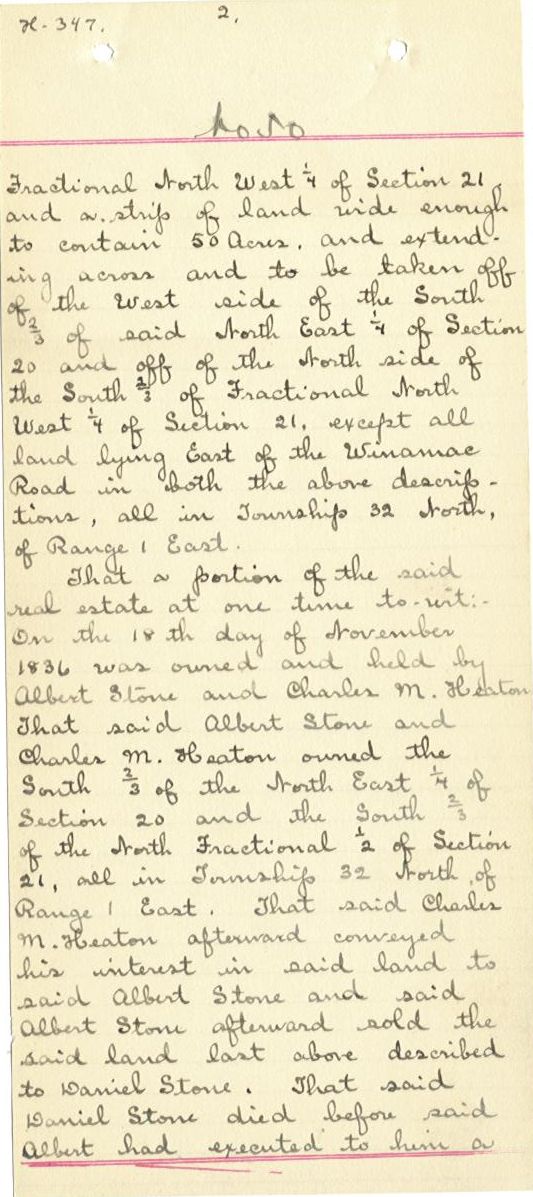 H-347.
2.
Fractional North West 1/4 of Section 21,
and a strip of land wide enough
to contain 50 Acres, and extend-
ing across and to be taken off
of the West side of the South
2/3 of said North East 1/4 of Section
20 and off of the North side of
the South 2/3 of Fractional North
West 1/4 of Section 21, except all
land lying East of the Winamac
Road in both the above descrip-
tions, all in Township 32 North,
of Range 1 East.
That a portion of the said
real estate at one time to-wit:-
On the 18th day of November
1836 was owned and held by
Albert Stone and Charles M. Heaton
That said Albert Stone and
Charles M. Heaton owned the
South 2/3 of the North East 1/4 of
Section 20 and the South 2/3
of the North Fractional 1/2 of Section
21, all in Township 32 North, of
Range 1 East. That said Charles
M. Heaton afterward conveyed
his interest in said land to
said Albert Stone and said
Albert Stone afterward sold the
said land last above described
to Daniel Stone. That said
Daniel Stone died before said
Albert had executed to him a